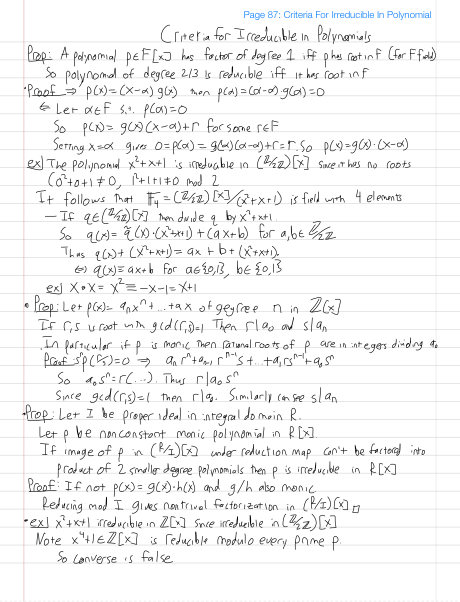 Page 87: Criteria For Irreducible In Polynomial
Criteria for Irreducible In Polynomials
Prop: A polynomial p∈F[x] has factor of degree 1 iff p has root in F (for F field)
So polynomial of degree 2/3 is reducible iff it has root in F
• Proof ⇒ p(x)=(x-α)g(x) then p(α)=(α-α)g(α)=0
⇐ Let α∈F s.t. p(α)=0
So p(x)= g(x)(x-α)+r for some r∈F
Setting x=α gives 0=p(α)=g(α)(α-α)+r=r. So p(x)=g(x)·(x-α)
ex] The polynomial x²+x+1 is irreducible in (ℤ/2ℤ)[x] since it has no roots
(0²+0+1≠0, 1²+1+1≠0 mod 2
It follows that 𝔽₄ = (ℤ/2ℤ)[x]/(x²+x+1) is field with 4 elements
— If q∈(ℤ/2ℤ)[x] then divide q by x²+x+1.
So q(x)= q̃(x)·(x²+x+1)+(ax+b) for a,b∈ℤ/2ℤ
Thus q(x)+(x²+x+1)=ax+b+(x²+x+1).
⇔ q(x)≡ax+b for a∈{0,1}, b∈{0,1}
ex] x•x= x²≡-x-1=x+1
• Prop: Let p(x)= aₙxⁿ+...+a₀ of gegree n in ℤ[x]
If r/s is root with gcd(r,s)=1 Then r|a₀ and s|aₙ
In particular if p is monic then rational roots of p are in integers dividing a₀
Proof: sⁿp(r/s)=0 ⇒ aₙrⁿ+aₙ₋₁rⁿ⁻¹s+...+a₁rsⁿ⁻¹+a₀sⁿ
So a₀sⁿ=r(...). Thus r|a₀sⁿ
Since gcd(r,s)=1 then r|a₀. Similarly can see s|aₙ
• Prop: Let I be proper ideal in integral domain R.
Let p be nonconstant monic polynomial in R[x]
If image of p in (R/I)[x] under reduction map can't be factored into
product of 2 smaller degree polynomials then p is irreducible in R[x]
Proof: If not p(x)=g(x)·h(x) and g/h also monic
Reducing mod I gives nontrivial factorization in (R/I)[x] □
• ex] x²+x+1 irreducible in ℤ[x] since irreducible in (ℤ/2ℤ)[x]
Note x⁴+1∈ℤ[x] is reducible modulo every prime p.
So converse is false